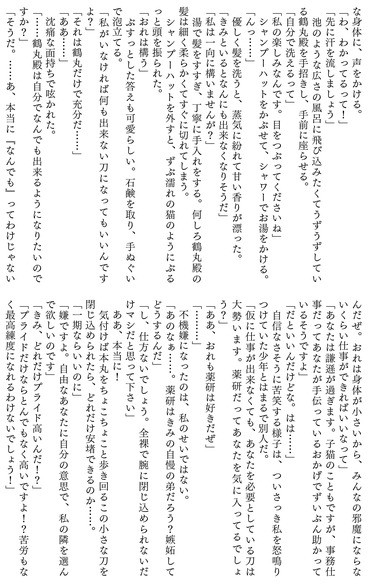 な身体に、声をかける。
「わ、わかってるって！」
「先に汗を流しましょう」
池のような広さの風呂に飛び込みたくてうずうずしてい
る鶴丸殿を手招きし、手前に座らせる。
「自分で洗えるって」
「私の楽しみなんです。目をつぶってくださいね」
シャンプーハットをかぶせて、シャワーでお湯をかける。
「んっ……」
優しく髪を洗うと、蒸気に紛れて甘い香りが漂った。
「きみといるとなんにも出来なくなりそうだ」
「私は一向に構いませんが？」
お湯で髪をすすぎ、丁寧に手入れをする。何しろ鶴丸殿の
髪は細く柔らかくてすぐに切れてしまう。
シャンプーハットを外すと、ずぶ濡れの猫のようにぶる
っと頭を振られた。
「おれは構う」
ぶすっとした答えも可愛らしい。石鹸を取り、手ぬぐい
で泡立てる。
「私がいなければ何も出来ない刀になってもいいんです
よ？」
「それは鶴丸だけで充分だ……」
「ああ……」
沈痛な面持ちで呟かれた。
「……鶴丸殿は自分でなんでも出来るようになりたいので
すか？」
「そうだ。……あ、本当に『なんでも』ってわけじゃない
んだぜ。おれは身体が小さいから、みんなの邪魔にならな
いくらい仕事ができればいいなって」
「あなたは謙遜が過ぎます。子猫のこともですが、事務仕
事だってあなたが手伝っているおかげでずいぶん助かって
いるそうですよ」
「だといいんだけどな。はは……」
自信なさそうに苦笑する様子は、ついさっき私を怒鳴り
つけていた少年とはまるで別人だ。
「仮に仕事が出来なくても、あなたを必要としている刀は
大勢います。薬研だってあなたを気に入ってるでしょ
う？」
「ああ、おれも薬研は好きだぜ」
「………」
不機嫌になったのは、私のせいではない。
「あのなぁ……。薬研はきみの自慢の弟だろう？嫉妬して
どうするんだ」
「し、仕方ないでしょう。全裸で腕に閉じ込められないだ
けマシだと思って下さい」
ああ、本当に！
気付けば本丸をちょこちょこと歩き回るこの小さな刀を
閉じ込められたら、どれだけ安堵できるのか……。
「一期ならいいのに」
「嫌ですよ。自由なあなたに自分の意思で、私の隣を選ん
で欲しいのです」
「きみ、どれだけプライド高いんだ！？」
「プライドだけならとんでもなく高いですよ！？苦労もな
く最高練度になれるわけないでしょう！」